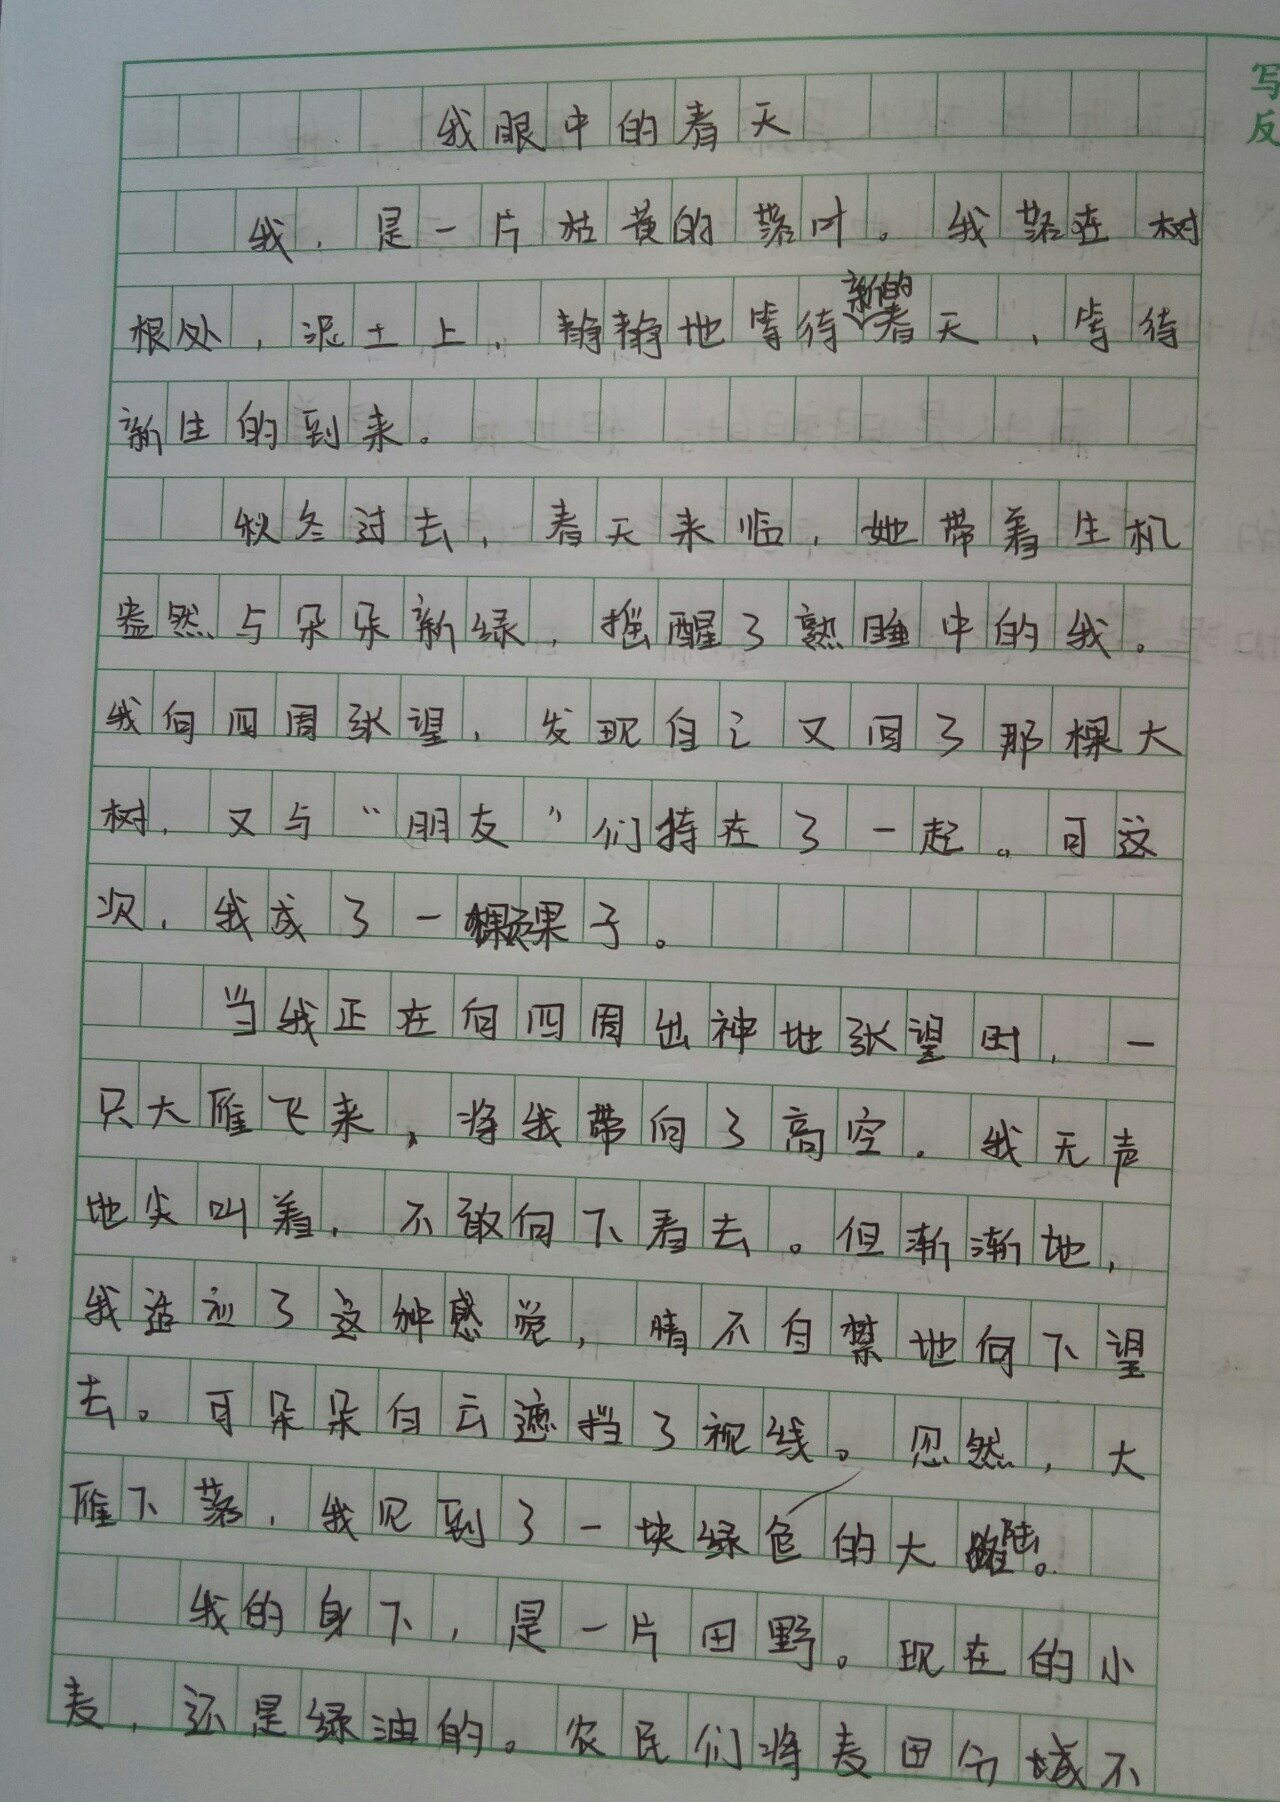 写
反
我眼中的春天
我，是一片枯黄的落叶。我落在树
根处，泥土上，静静地等待新的春天，等待
新生的到来。
秋冬过去，春天来临，她带着生机
盎然与朵朵新绿，摇醒了熟睡中的我。
我向四周张望，发现自己又回了那棵大
树，又与“朋友”们待在了一起。可这
次，我成了一颗果子。
当我正在向四周出神地张望时，一
只大雁飞来，将我带向了高空。我无声
地尖叫着，不敢向下看去。但渐渐地，
我适应了这种感觉，情不自禁地向下望
去。可朵朵白云遮挡了视线。忽然，大
雁下落，我见到了一块绿色的大陆。
我的身下，是一片田野。现在的小
麦，还是绿油的。农民们将麦田分成不